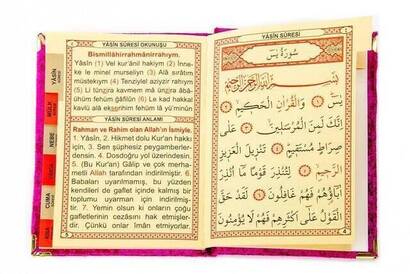 YÂSÎN SÛRESİ OKUNUŞU
Bismillâhirrahmânirrahym.
Yâsîn (1) Vel kur'ânil hakiym (2) İnne-
ke le minel murseliyn (3) Alâ sırâtım
müstekıym (4) Tenziylel aziyzir rahıym
(5) Li tünzira kavmem mâ ünzira âbâ-
ühüm fehüm ğâfilûn (6) Le kad hakkal
kavlü alâ ekserihim fehüm lâ yü'minûn
YÂSÎN SÛRESİ ANLAMI
Rahman ve Rahim olan Allah'ın İsmiyle.
1. Yâsîn, 2. Hikmet dolu Kur'an hakkı
için, 3. Sen şüphesiz peygamberler-
densin. 4. Dosdoğru yol üzerindesin.
5. (Bu Kur'an) Gâlip ve çok merha-
metli Allah tarafından indirilmiştir. 6.
Babaları uyarılmamış, bu yüzden
kendileri de gaflet içinde kalmış bir
toplumu uyarman için indirilmiş-
tir. 7. Yemin olsun ki onların çoğu
gafletlerinin cezasını hak etmişler-
dir. Çünkü onlar îman etmiyorlar.
5
YÂSÎN
MÜLK
NEBE
CUMA
YÂSÎN SÛRESİ
سُورَةُ يٰسٓ
بِسْمِ اللّٰهِ الرَّحْمٰنِ الرَّحِيمِ
يٰسٓ ﴿١﴾ وَالْقُرْاٰنِ الْحَكِيمِ ﴿٢﴾
اِنَّكَ لَمِنَ الْمُرْسَلِينَ ﴿٣﴾ عَلٰى
صِرَاطٍ مُسْتَقِيمٍ ﴿٤﴾ تَنْزِيلَ الْعَزِيزِ
الرَّحِيمِ ﴿٥﴾ لِتُنْذِرَ قَوْمًا مَٓا اُنْذِرَ
اٰبَٓاؤُهُمْ فَهُمْ غَافِلُونَ ﴿٦﴾ لَقَدْ حَقَّ
الْقَوْلُ عَلٰٓى اَكْثَرِهِمْ فَهُمْ لَا يُؤْمِنُونَ
4